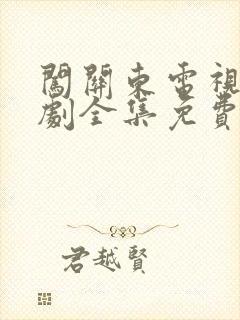 闖關東電視
劇全集免費
君越賢